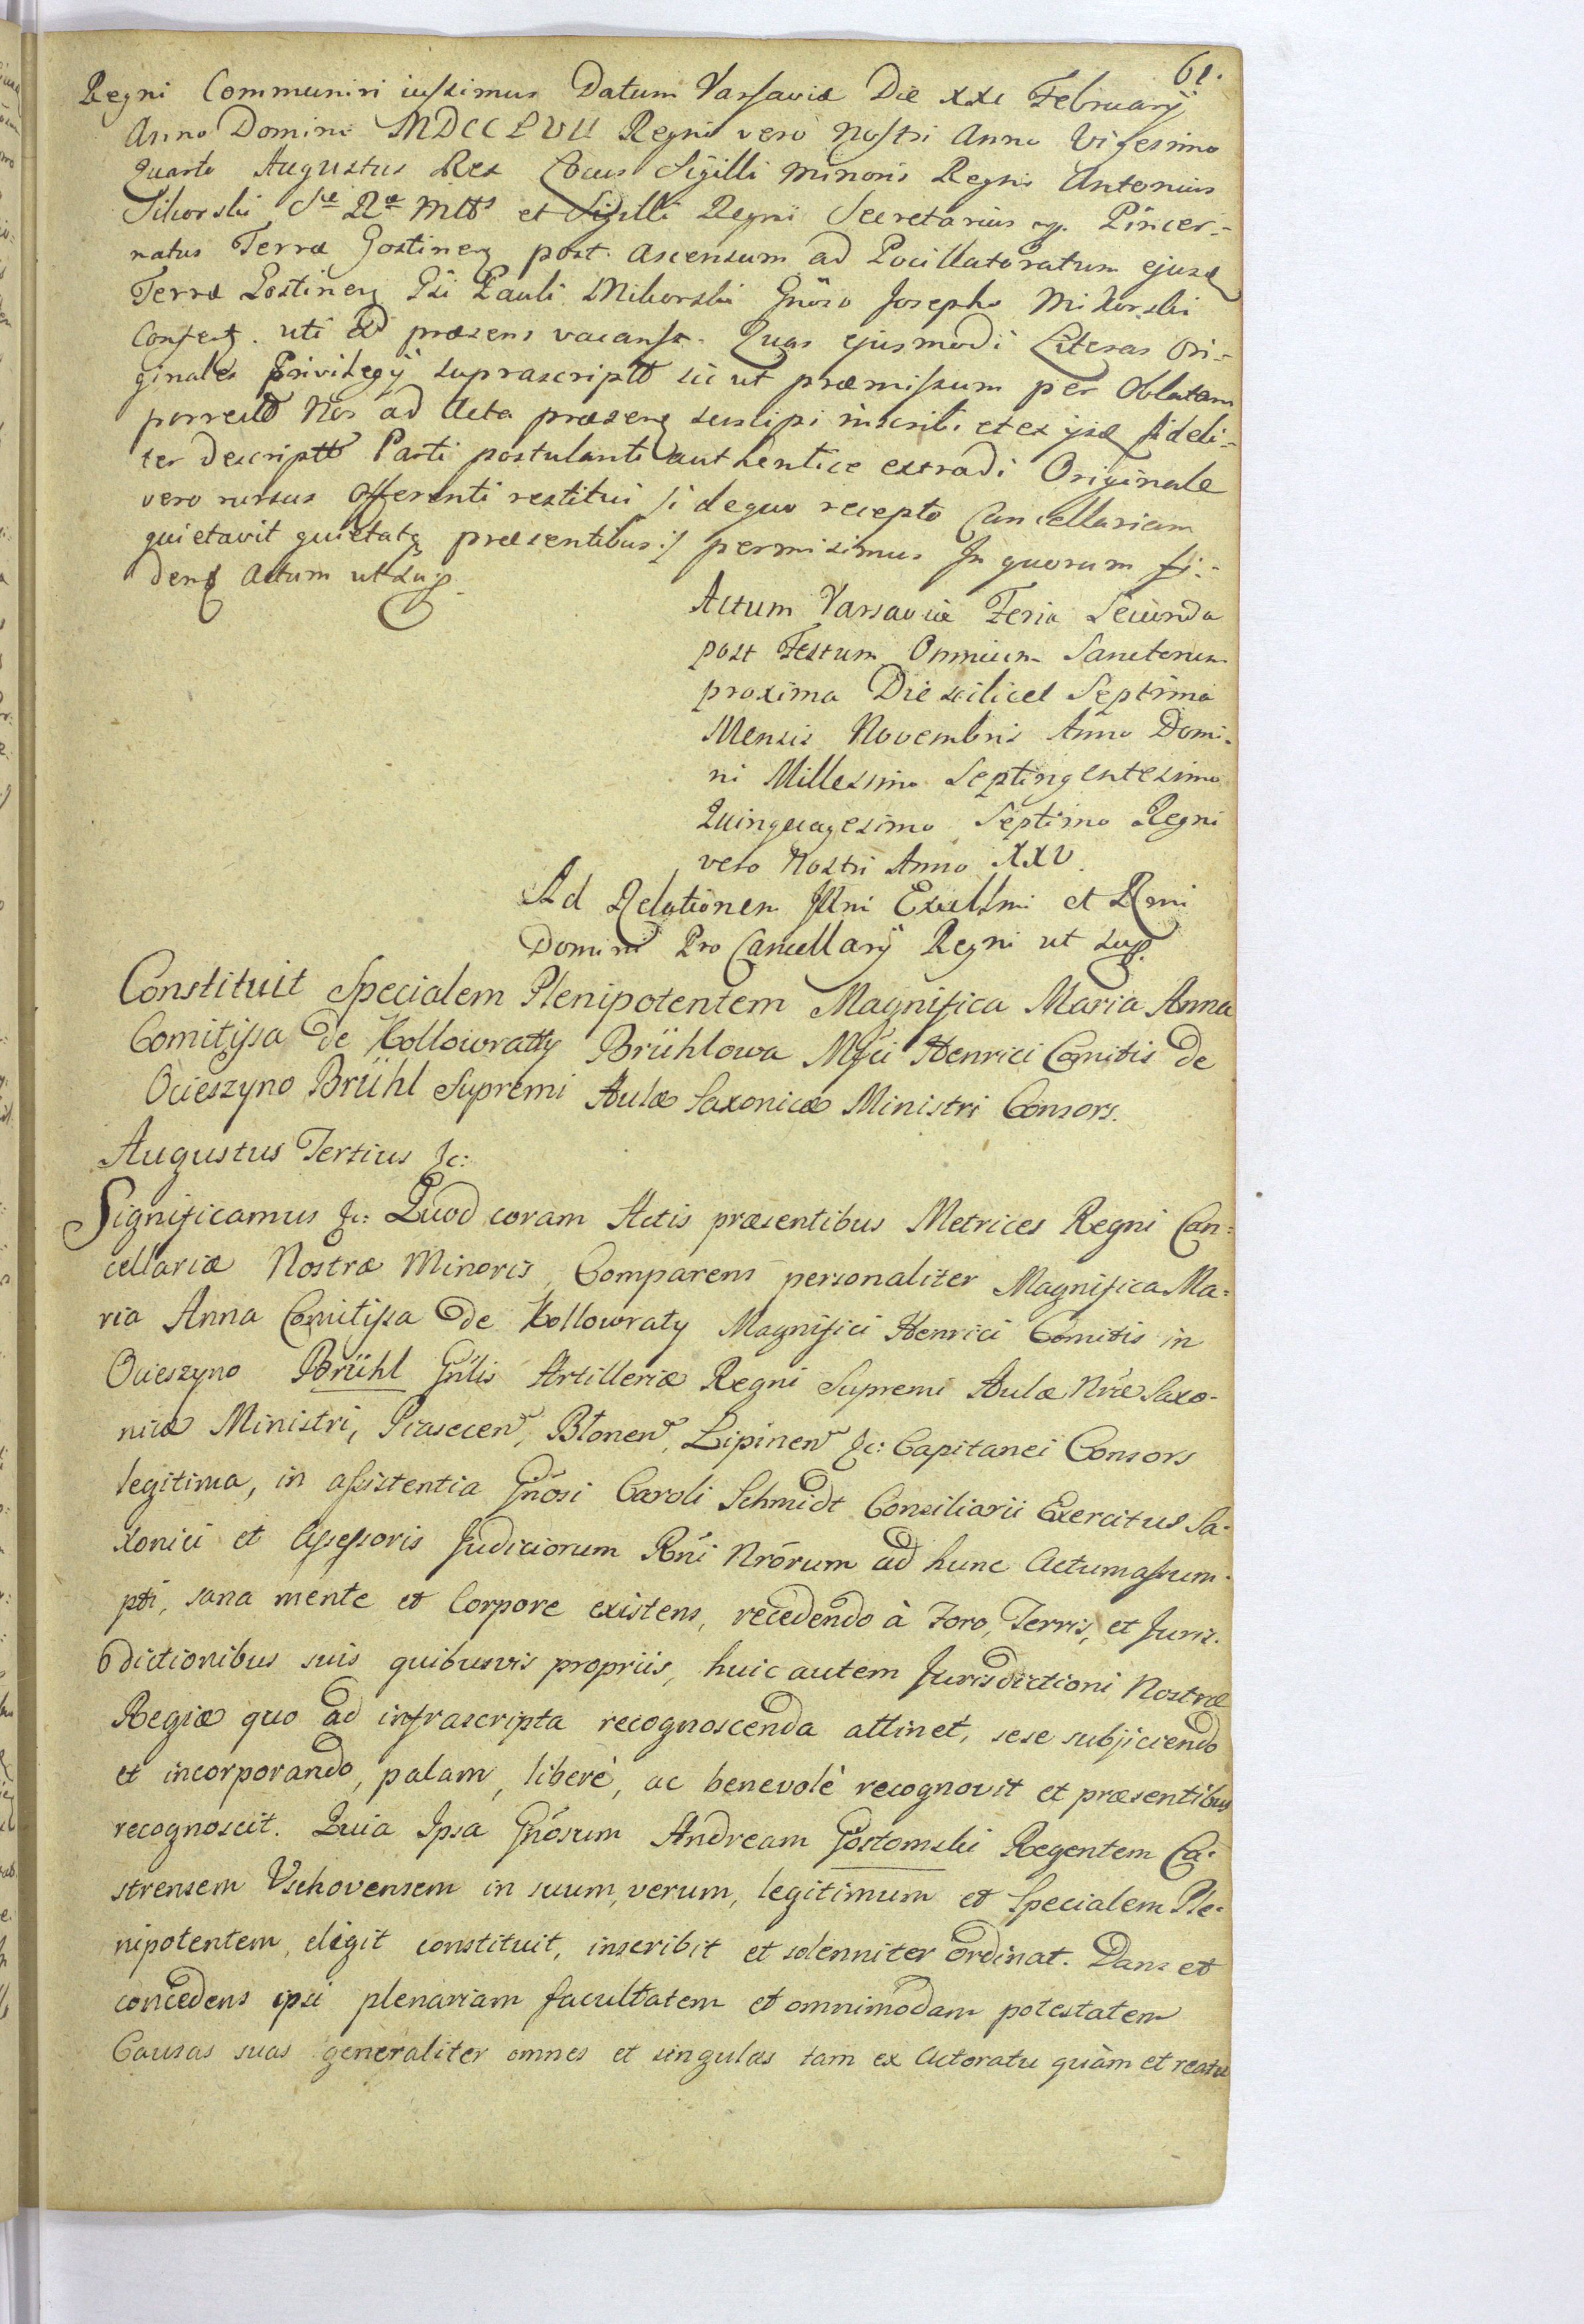 61.
Regni Communiri iussimus Datum Varsaviæ Die XXI Februarij
Anno Domini MDCCLVII Regni vero Nostri Anno Vigesimo
Quarto Augustus Rex Locus Sigilli Minoris Regni Antonius
Sikorski Sæ Ræ Mttis et Sigilli Regni Secretarius Pincer-
natus Terræ Gostinen post ascensum ad Pocillatoratum ejusd
Terræ Gostinen Gsi Pauli Mikorski Gnoso Josepho Mikorski
Confert. uti ad præsens vacans. Quas ejusmodi Literas Ori-
ginales Privilegij suprascript sic ut præmissum per Oblatam
porrect Nos ad Acta præsen suscipi inscribi et ex ijsd fideli-
ter descript Parti postulanti authentice extradi Originale
vero rursus Offerenti restitui /: de quo recepto Cancellariam
quietavit quietatq præsentibus :/ permisimus In quorum fi-
dem Actum ut sup.
Actum Varsaviæ Feria Secunda
post Festum Omnium Sanctorum
proxima Die scilicet Septima
Mensis Novembris Anno Domi-
ni Millesimo Septingentesimo
Quinquagesimo Septimo Regni
vero Nostri Anno XXV.
Ad Relationem Illmi Excellmi et Rmi
Domini Pro Cancellarij Regni ut sup.
Constituit Specialem Plenipotentem Magnifica Maria Anna
Comitissa de Kollowratty Brühlowa Mfci Henrici Comitis de
Ocieszyno Brühl Supremi Aulæ Saxonicæ Ministri Consors.
Augustus Tertius &c:
Significamus &c: Quod coram Actis præsentibus Metrices Regni Can-
cellariæ Nostræ Minoris, Comparens personaliter Magnifica Ma-
ria Anna Comitissa de Kollowraty Magnifici Henrici Comitis in
Ocieszyno Brühl Gnlis Artilleriæ Regni Supremi Aulæ Nræ Saxo-
nicæ Ministri, Piasecen, Błonen, Lipinen &c: Capitanei Consors
legitima, in assistentia Gnosi Caroli Schmidt Consiliarii Exercitus Sa-
xonici et Assessoris Judiciorum Rni Nrorum ad hunc Actum assum-
pti, sana mente et Corpore existens, recedendo à Foro, Terris, et Juris-
dictionibus suis quibusvis propriis, huic autem Jurisdictioni Nostræ
Regiæ quo ad infrascripta recognoscenda attinet, sese subjiciendo
et incorporando, palam, liberè, ac benevolè recognovit et præsentibus
recognoscit. Quia Ipsa Gnosum Andream Gostomski Regentem Ca-
strensem Vschovensem in suum, verum, legitimum et Specialem Ple-
nipotentem, eligit constituit, inscribit et solenniter ordinat. Dans et
concedens ipsi plenariam facultatem et omnimodam potestatem
Causas suas generaliter omnes et singulas tam ex Actoratu quàm et reatu